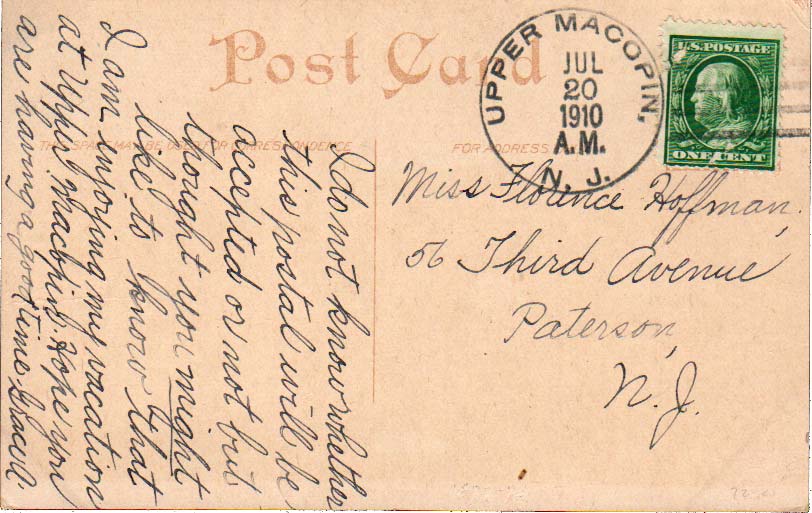 Post Card
THIS SPACE MAY BE USED FOR CORRESPONDENCE
FOR ADDRESS
UPPER MACOPIN,
JUL
20
1910
A.M.
N. J.
U.S. POSTAGE
ONE CENT
Miss Florence Hoffman,
56 Third Avenue
Paterson,
N. J.
I do not know whether
this postal will be
accepted or not but
thought you might
like to know that
I am enjoying my vacation
at Upper Macopin. Hope you
are having a good time.